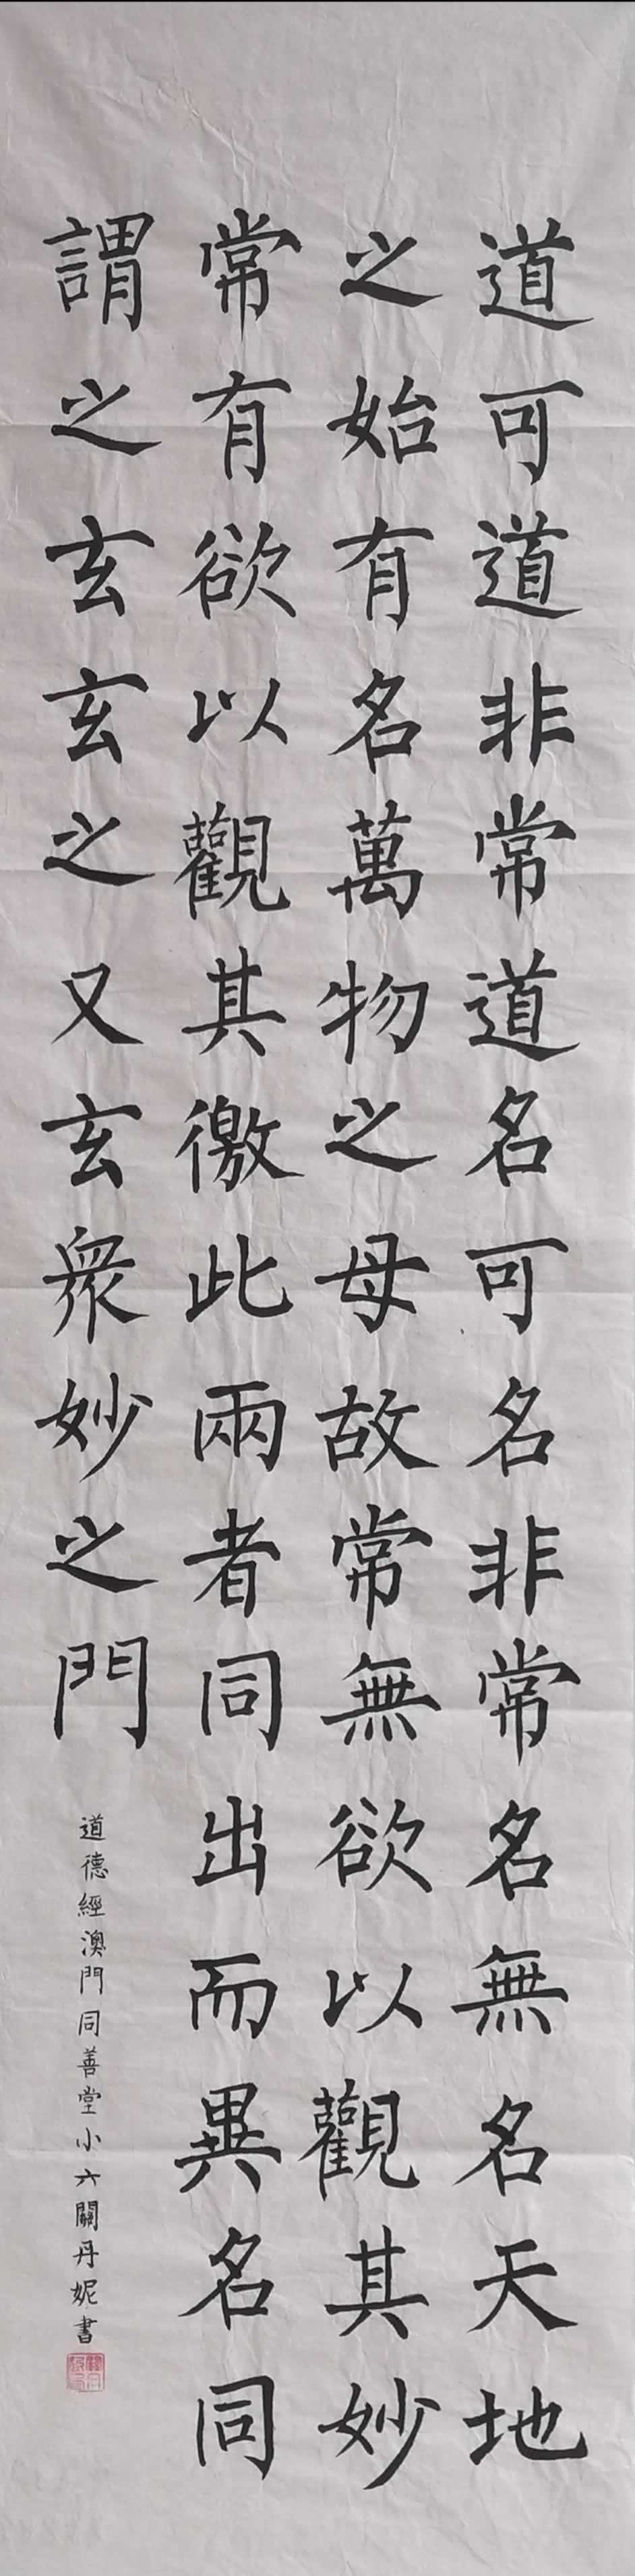 道可道非常道名可名非常名無名天地
之始有名萬物之母故常無欲以觀其妙
常有欲以觀其徼此兩者同出而異名同
謂之玄玄之又玄衆妙之門
道德經澳門同善堂小六關丹妮書